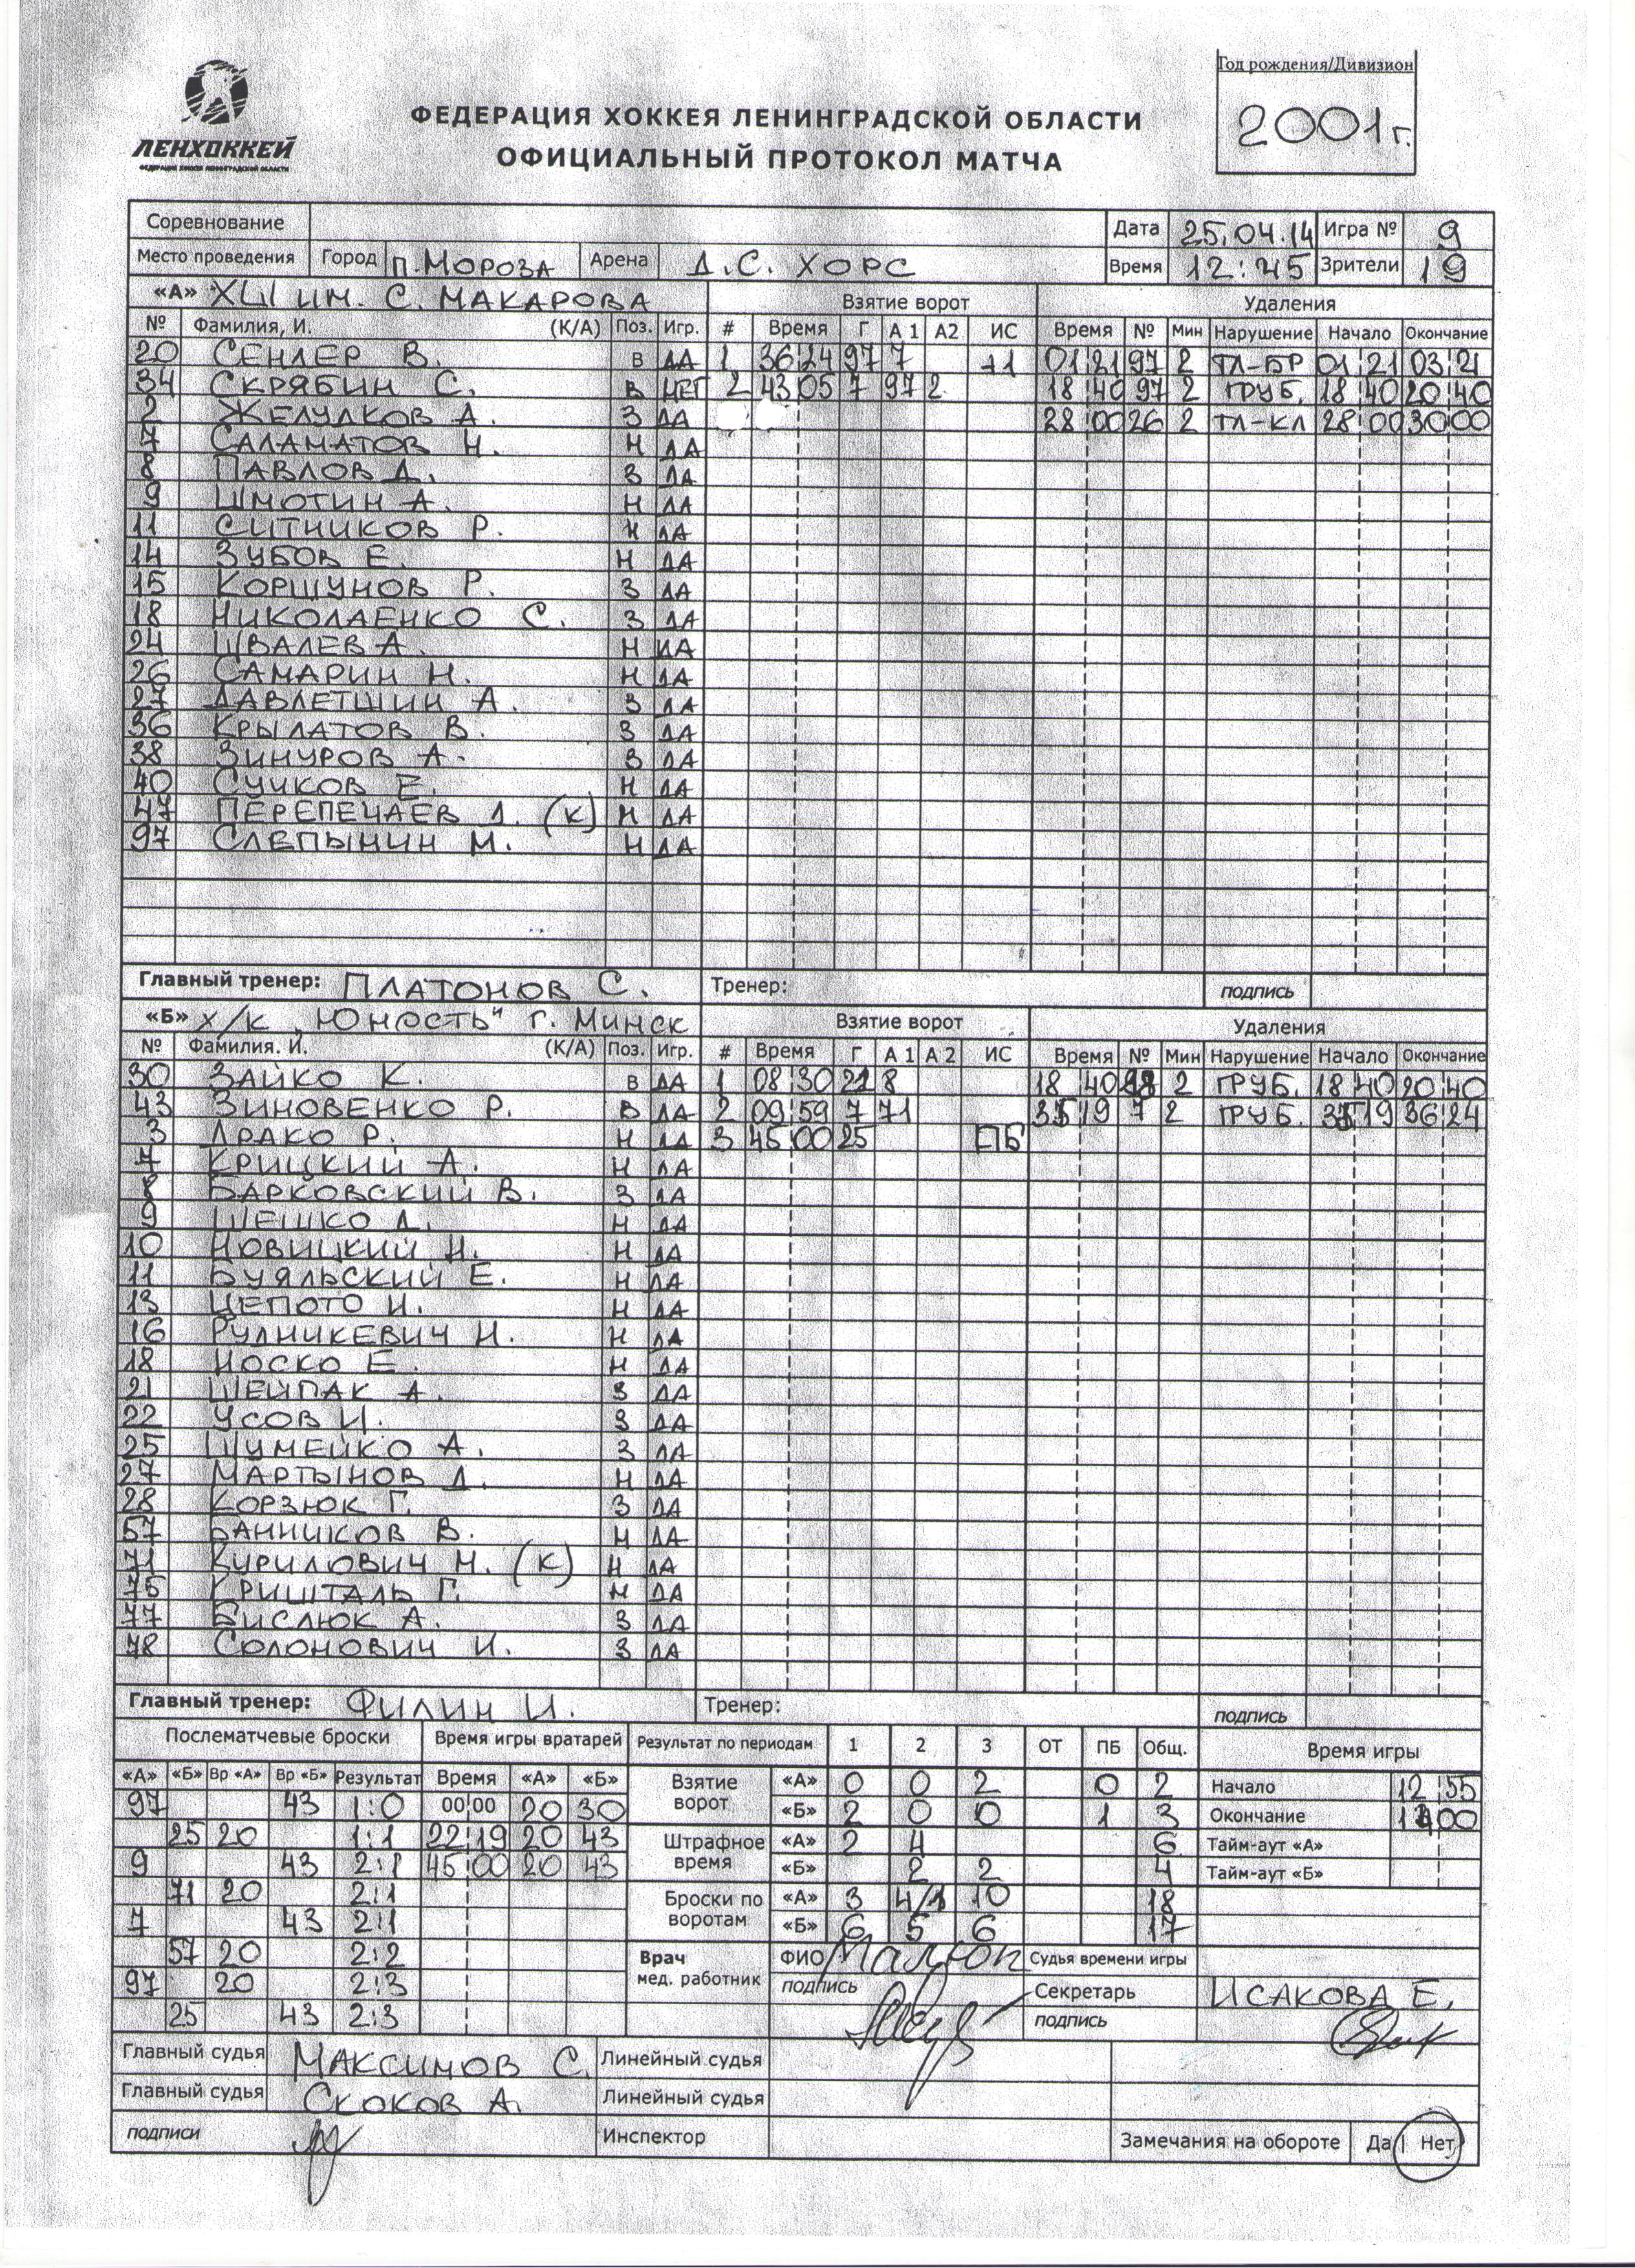 Год рождения/Дивизион
2001г.
ЛЕНХОККЕЙ
ФЕДЕРАЦИЯ ХОККЕЯ ЛЕНИНГРАДСКОЙ ОБЛАСТИ
ФЕДЕРАЦИЯ ХОККЕЯ ЛЕНИНГРАДСКОЙ ОБЛАСТИ
ОФИЦИАЛЬНЫЙ ПРОТОКОЛ МАТЧА
Соревнование Дата 25.04.14 Игра № 9
Место проведения Город П.МОРОЗА Арена Д.С. ХОРС Время 12:45 Зрители 19
«А» ХШ ИМ. С. МАКАРОВА Взятие ворот Удаления
№ Фамилия, И. (К/А) Поз. Игр. # Время Г А 1 А2 ИС Время № Мин Нарушение Начало Окончание
20 СЕНДЕР В. В ДА 1 36 24 97 7 +1 01 21 97 2 ТЛ-БР 01 21 03 21
34 СКРЯБИН С. В НЕТ 2 43 05 7 97 2 18 40 97 2 ГРУБ. 18 40 20 40
2 ЖЕЛУДКОВ А. З ДА 28 00 26 2 ТЛ-КЛ 28 00 30 00
7 САЛАМАТОВ Н. Н ДА
8 ПАВЛОВ Д. З ДА
9 ШМОТИН А. Н ДА
11 СИТНИКОВ Р. Н ДА
14 ЗУБОВ Е. Н ДА
15 КОРШУНОВ Р. З ДА
18 НИКОЛАЕНКО С. З ДА
24 ШВАЛЕВ А. Н ДА
26 САМАРИН Н. Н ДА
27 ДАВЛЕТШИН А. З ДА
36 КРЫЛАТОВ В. З ДА
38 ЗИНУРОВ А. З ДА
40 СУЧКОВ Е. Н ДА
47 ПЕРЕПЕЧАЕВ Д. (К) Н ДА
97 СЛЕПЫНИН М. Н ДА
Главный тренер: ПЛАТОНОВ С. Тренер: подпись
«Б» Х/К „ЮНОСТЬ" Г. МИНСК Взятие ворот Удаления
№ Фамилия. И. (К/А) Поз. Игр. # Время Г А 1 А 2 ИС Время № Мин Нарушение Начало Окончание
30 ЗАЙКО К. В ДА 1 08 30 21 8 18 40 2 ГРУБ. 18 40 20 40
43 ЗИНОВЕНКО Р. В ДА 2 09 59 7 71 35 19 7 2 ГРУБ. 35 19 36 24
3 ДРАКО Р. Н ДА 3 45 00 25 ПБ
7 КРИЦКИЙ А. Н ДА
8 БАРКОВСКИЙ В. З ДА
9 ШЕШКО Д. Н ДА
10 НОВИЦКИЙ Н. Н ДА
11 БУЯЛЬСКИЙ Е. Н ДА
13 ЦЕПОТО И. Н ДА
16 РУДНИКЕВИЧ Н. Н ДА
18 НОСКО Е. Н ДА
21 ШЕЙПАК А. З ДА
22 УСОВ И. З ДА
25 ШУМЕЙКО А. З ДА
27 МАРТЫНОВ Д. Н ДА
28 КОРЗЮК Г. З ДА
57 БАННИКОВ В. Н ДА
71 КИРИЛОВИЧ Н. (К) Н ДА
75 КРИШТАЛЬ Г. Н ДА
77 БИСЛЮК А. З ДА
78 СОЛОНОВИЧ И. З ДА
Главный тренер: ФИЛИН И. Тренер: подпись
Послематчевые броски Время игры вратарей Результат по периодам 1 2 3 ОТ ПБ Общ. Время игры
«А» «Б» Вр «А» Вр «Б» Результат Время «А» «Б» Взятие ворот «А» 0 0 2 0 2 Начало 12 55
97 43 1:0 00:00 20 30 «Б» 2 0 0 1 3 Окончание 00
25 20 1:1 22 19 20 43 Штрафное время «А» 2 4 6 Тайм-аут «А»
9 43 2:1 45 00 20 43 «Б» 2 2 4 Тайм-аут «Б»
71 20 2:1 Броски по воротам «А» 3 4/1 10 18
7 43 2:1 «Б» 6 5 6 17
57 20 2:2 Врач мед. работник ФИО Судья времени игры
97 20 2:3 подпись Секретарь ИСАКОВА Е.
25 43 2:3 подпись
Главный судья МАКСИМОВ С. Линейный судья
Главный судья СКОКОВ А. Линейный судья
подписи Инспектор Замечания на обороте Да Нет